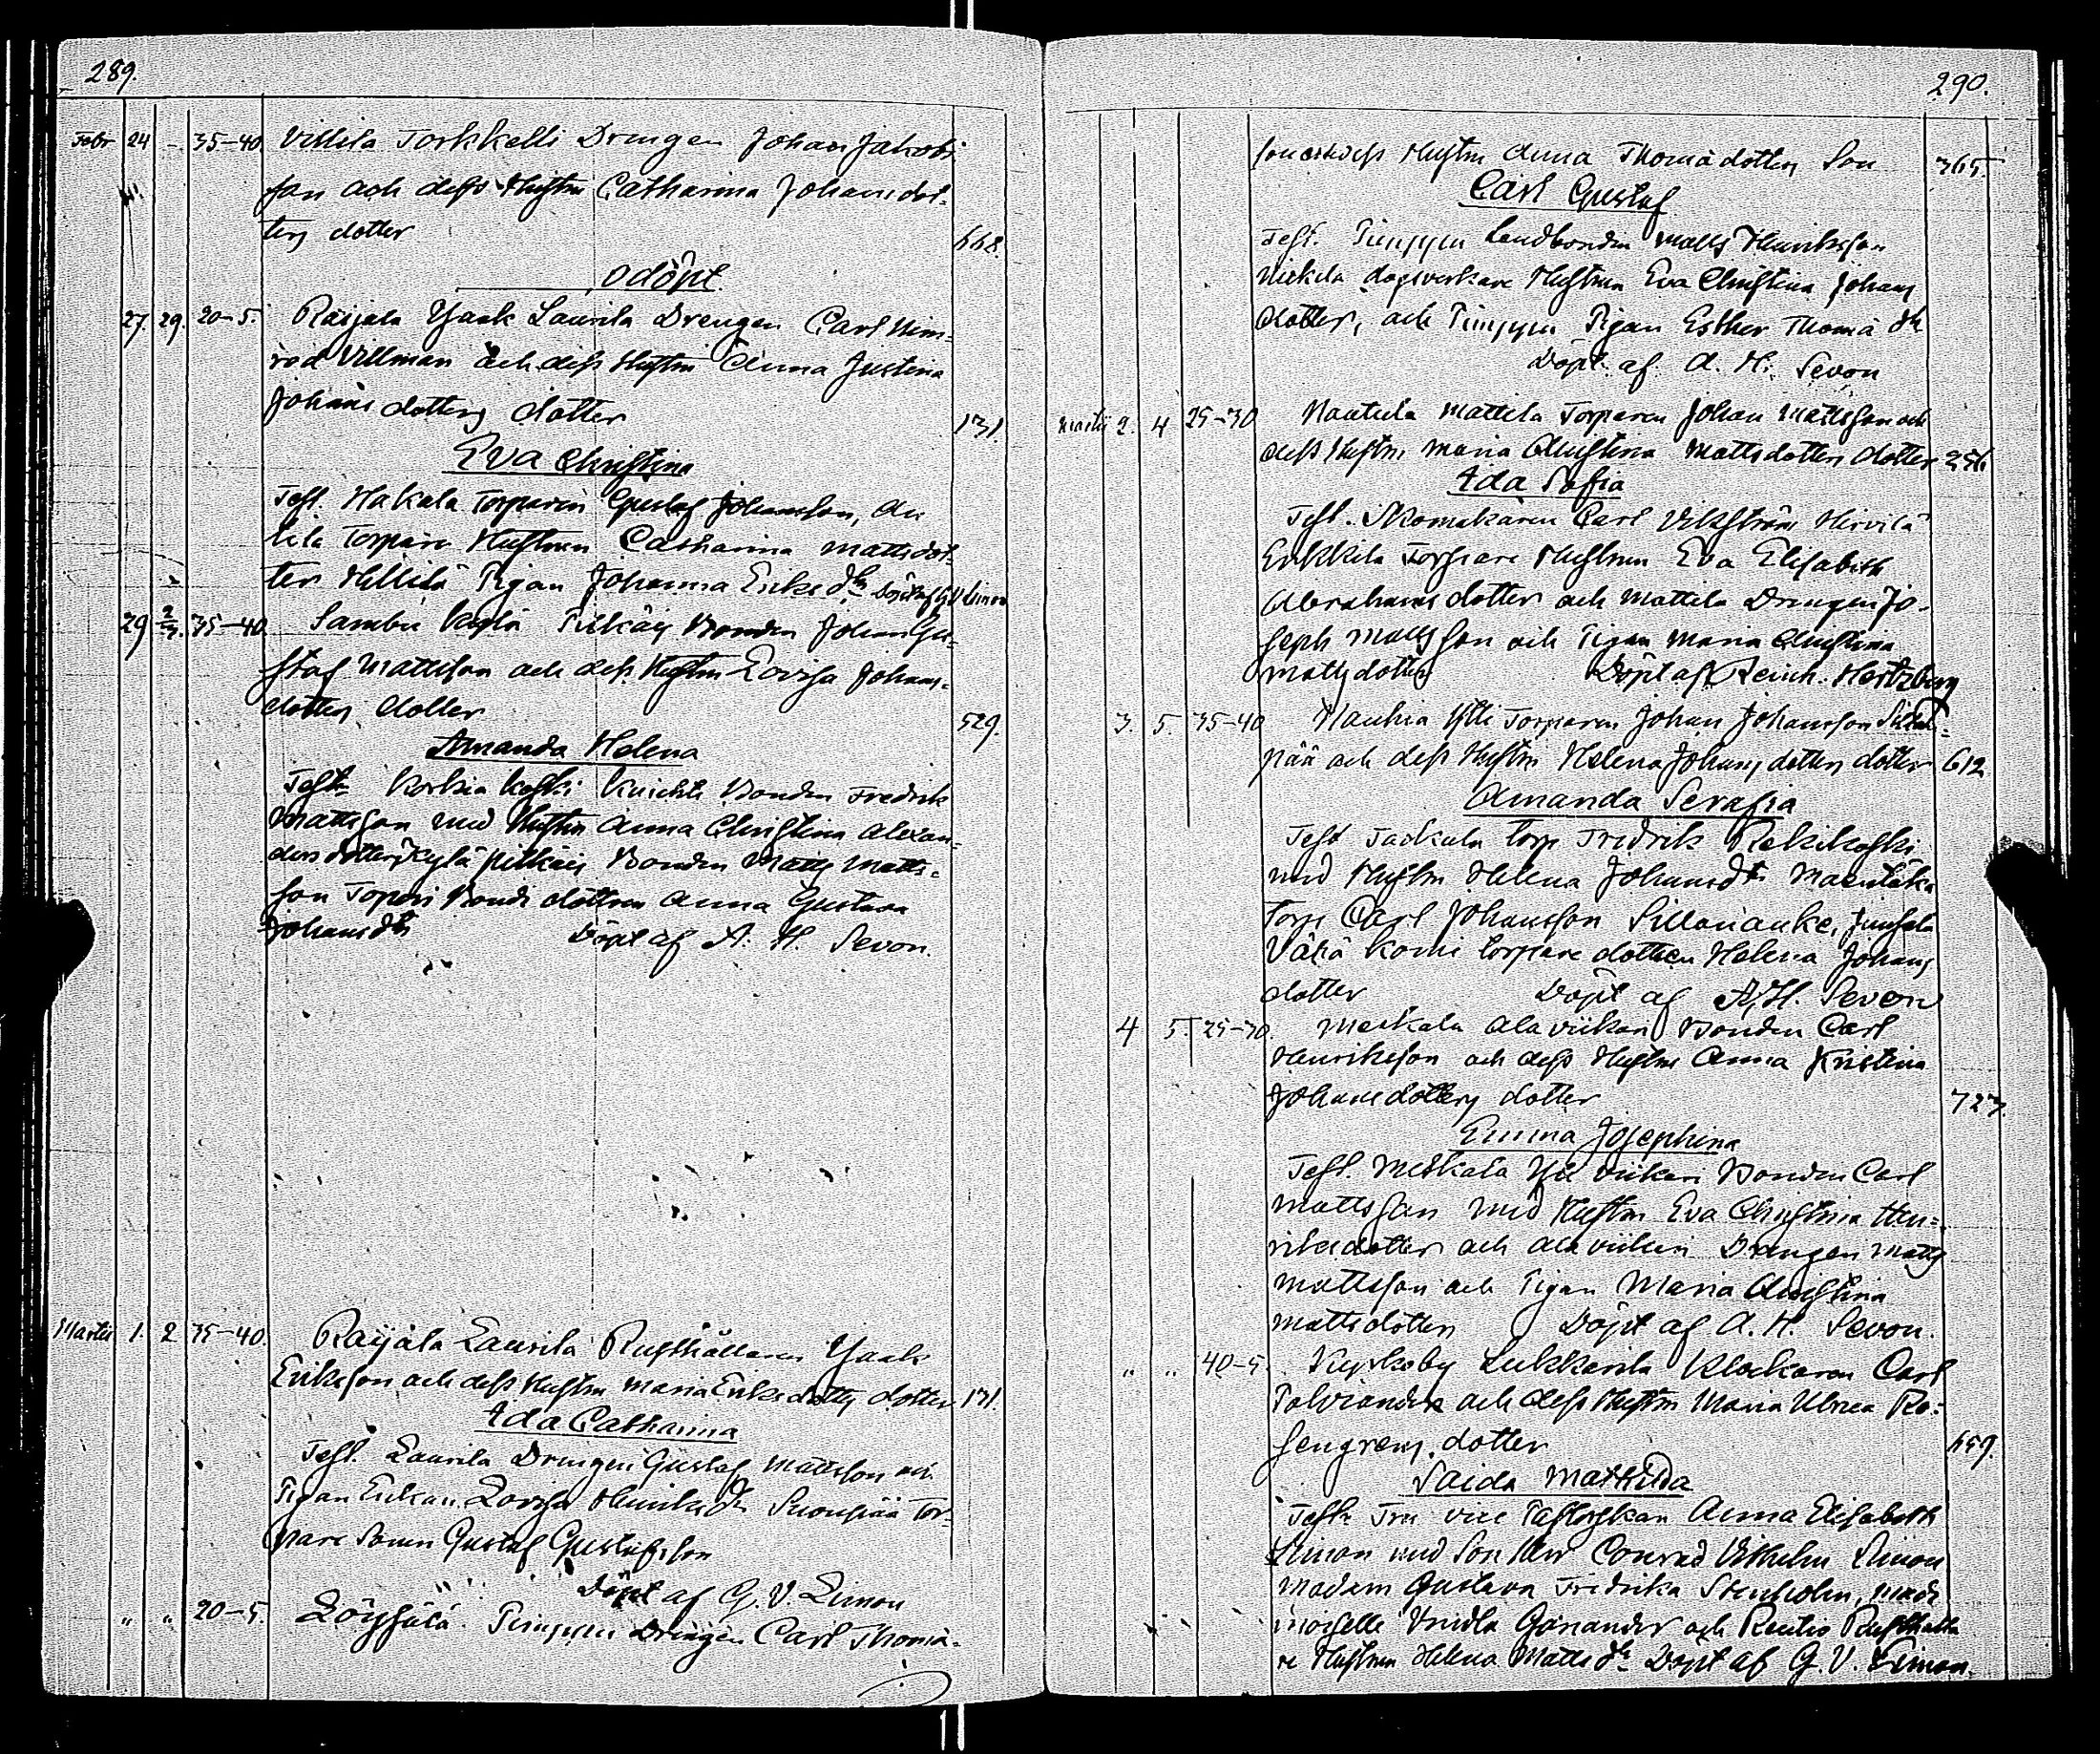 289.
Febr 24 - 35-40 Villila Torkkelli Drengen Johan Jakobs
son och dess Hustru Catharina Johansdot-
ters dotter 668.
odöpt.
27. 29. 20-5. Raijala Yaak Laurila Drengen Carl Nim-
rod Villman och dess Hustru Anna Justina
Johans dotters dotter 131.
Eva Christina
Test. Hakala Torparen Gustaf Johansson, An
tila Torpare Hustrun Catharina Mattsdot-
ter Hellilä Pigan Johanna Eriks dr Döpt af G V Limon
29 2/3. 35-40 Sambu kylä Pitkäis Bonden Johan Gu-
staf Mattsson och dess Hustru Lovisa Johans-
dotters dotter 529.
Amanda Helena
Test. Korkia koski Bonden Fredrik
Mattsson med Hustru Anna Christina Alexan-
ders dotter, kylä pitkäis Bonden Matts Matts-
son Toperi Bonde dottren Anna Gustava
Johansdr Döpt af A. H. Sevon.
Martii 1. 2 35-40. Raijala Laurila Rusthållaren Yaak
Eriksson och dess Hustru Maria Eriks dotters dotter 131.
Ida Catharina
Test. Laurila Drengen Gustaf Mattsson och
Pigan Lovisa Henriks dr Tor-
pare Sonen Gustaf Gustafsson
Döpt af G. V. Limon
" " 20-5. Löysälä Pimppu Drengen Carl Thomæ-
290.
son och dess Hustru Anna Thomædotters Son 365.
Carl Gustaf
Test. Pimppu Landbonden Matts Henriksson
dagsverkare Hustrun Eva Christina Johans
dotter, och Pimppu Pigan Esther Thomæ dr
Döpt af A. H. Sevon
Martii 2. 4 25-30 Nautula Mattila Torparen Johan Mattsson och
dess Hustru Maria Christina Matts dotters dotter
Ida Sofia
Test. Skomakaren Carl Vikström Hirvilä
Erkkilä Torpare Hustrun Eva Elisabeth
Abrahams dotter och Mattila Drengen Jo-
seph Mattsson och Pigan Maria Christina
Mattsdotter Döpt af Hertzberg
3. 5. 35-40 Hauhia Ylli Torparen Johan Johansson
pää och dess Hustru Helena Johans dotters dotter 612
Amanda Serafia
Test Torp Fredrik Rekikoski
med Hustru Helena Johansdr
Torp Carl Johansson
Vähä Torpare dottren Helena Johans
dotter Döpt af A. H. Sevon
4 5. 25-30. Meskala Alaviikari Bonden Carl
Henriksson och dess Hustru Anna Kristina
Johansdotters dotter 723.
Emma Josephina
Test. Meskala Yli viikari Bonden Carl
Mattsson med Hustru Eva Christina Hen-
riksdotter och Alaviikari Drengen Matts
Mattsson och Pigan Maria Christina
Mattsdotter Döpt af A. H. Sevon.
" " 40-5. Kyrkoby Lukkarila Klockaren Carl
Palviander och dess Hustru Maria Ulrica Ro-
sengrens dotter 659.
Saida Mathilda
Test. Fru vice Pastorskan Anna Elisabeth
Limon med Son Herr Conrad Vilhelm Limon
Madam Gustava Fredrika Stenholm, Made
moiselle Ganander och Rusthålla
re Hustrun Helena Matts dr Döpt af G. V. Limon.